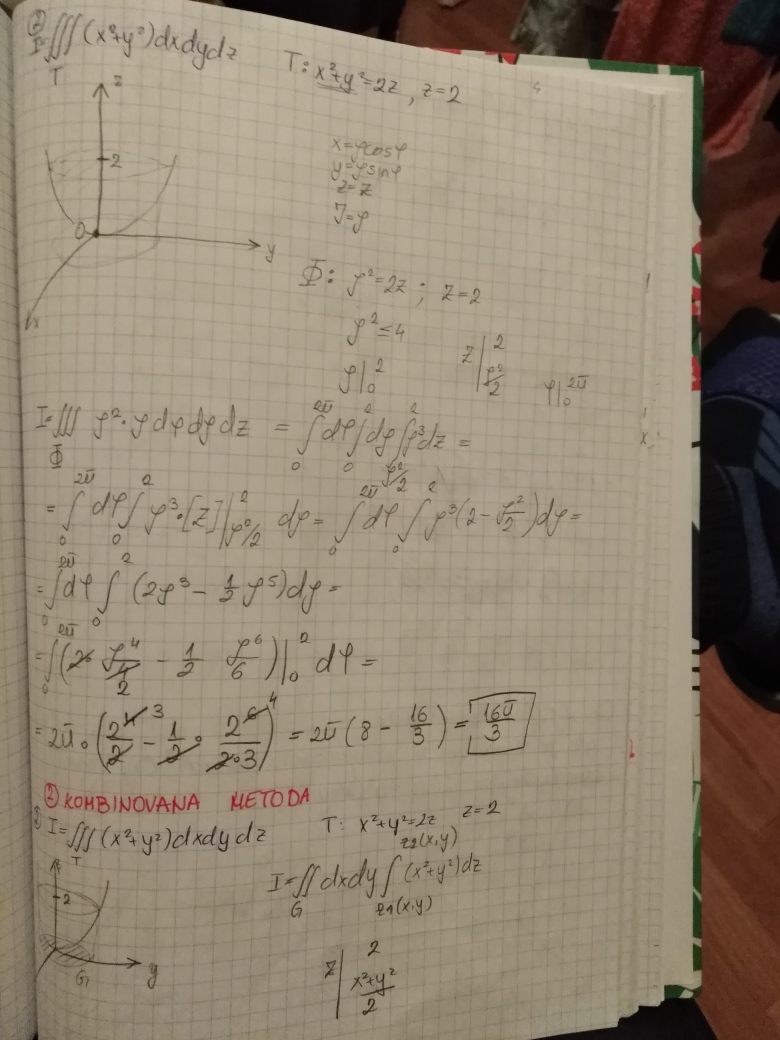 ②
I=∭(x²+y²)dxdydz
T
T: x²+y²=2z, z=2
z
2
0
y
x
x=ρcosφ
y=ρsinφ
z=z
J=ρ
Φ: ρ²=2z ; z=2
ρ²=4
ρ|₀²
z| 2
ρ²/2
φ|₀^2π
I=∭ ρ²·ρdφdρdz = ∫₀^2π dφ ∫₀² dρ ∫_{ρ²/2}^2 ρ³dz =
Φ
= ∫₀^2π dφ ∫₀² ρ³·[z]|_{ρ²/2}^2 dρ = ∫₀^2π dφ ∫₀² ρ³(2-ρ²/2)dρ=
= ∫₀^2π dφ ∫₀² (2ρ³ - 1/2 ρ⁵)dρ =
= ∫₀^2π (2· ρ⁴/4 2 - 1/2 ρ⁶/6)|₀² dφ =
= 2π·(2⁴ 3/2 - 1/2 · 2⁶ 4/2·3) = 2π(8 - 16/3) = 16π/3
② KOMBINOVANA METODA
① I=∭(x²+y²)dxdydz
T
T: x²+y²=2z z=2
I=∬ dxdy ∫ (x²+y²)dz
z₂(x,y)
G
z₁(x,y)
2
G
y
z| 2
x²+y²/2